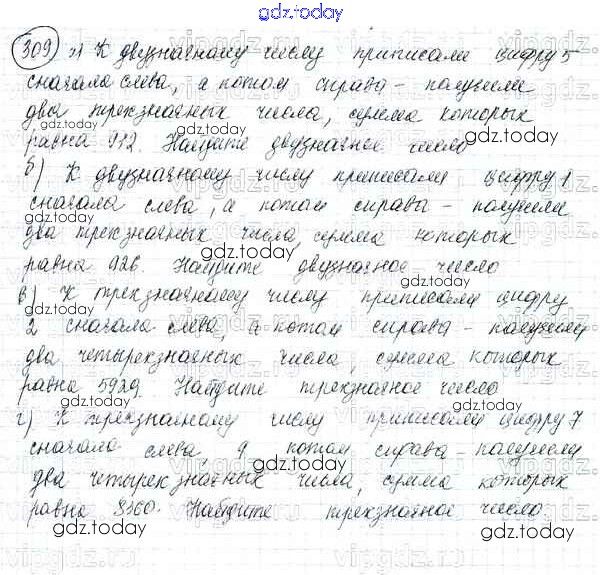 gdz.today
309 а) К двузначному числу приписали цифру 5
сначала слева, а потом справа – получили
два трехзначных числа, сумма которых
равна 912. Найдите двузначное число
б) К двузначному числу приписали цифру 1
сначала слева, а потом справа – получили
два трехзначных числа, сумма которых
равна 926. Найдите двузначное число
в) К трехзначному числу приписали цифру
2 сначала слева, а потом справа – получили
два четырехзначных числа, сумма которых
равна 5929. Найдите трехзначное число
г) К трехзначному числу приписали цифру 7
сначала слева, а потом справа – получили
два четырехзначных числа, сумма которых
равна 8360. Найдите трехзначное число.
gdz.today